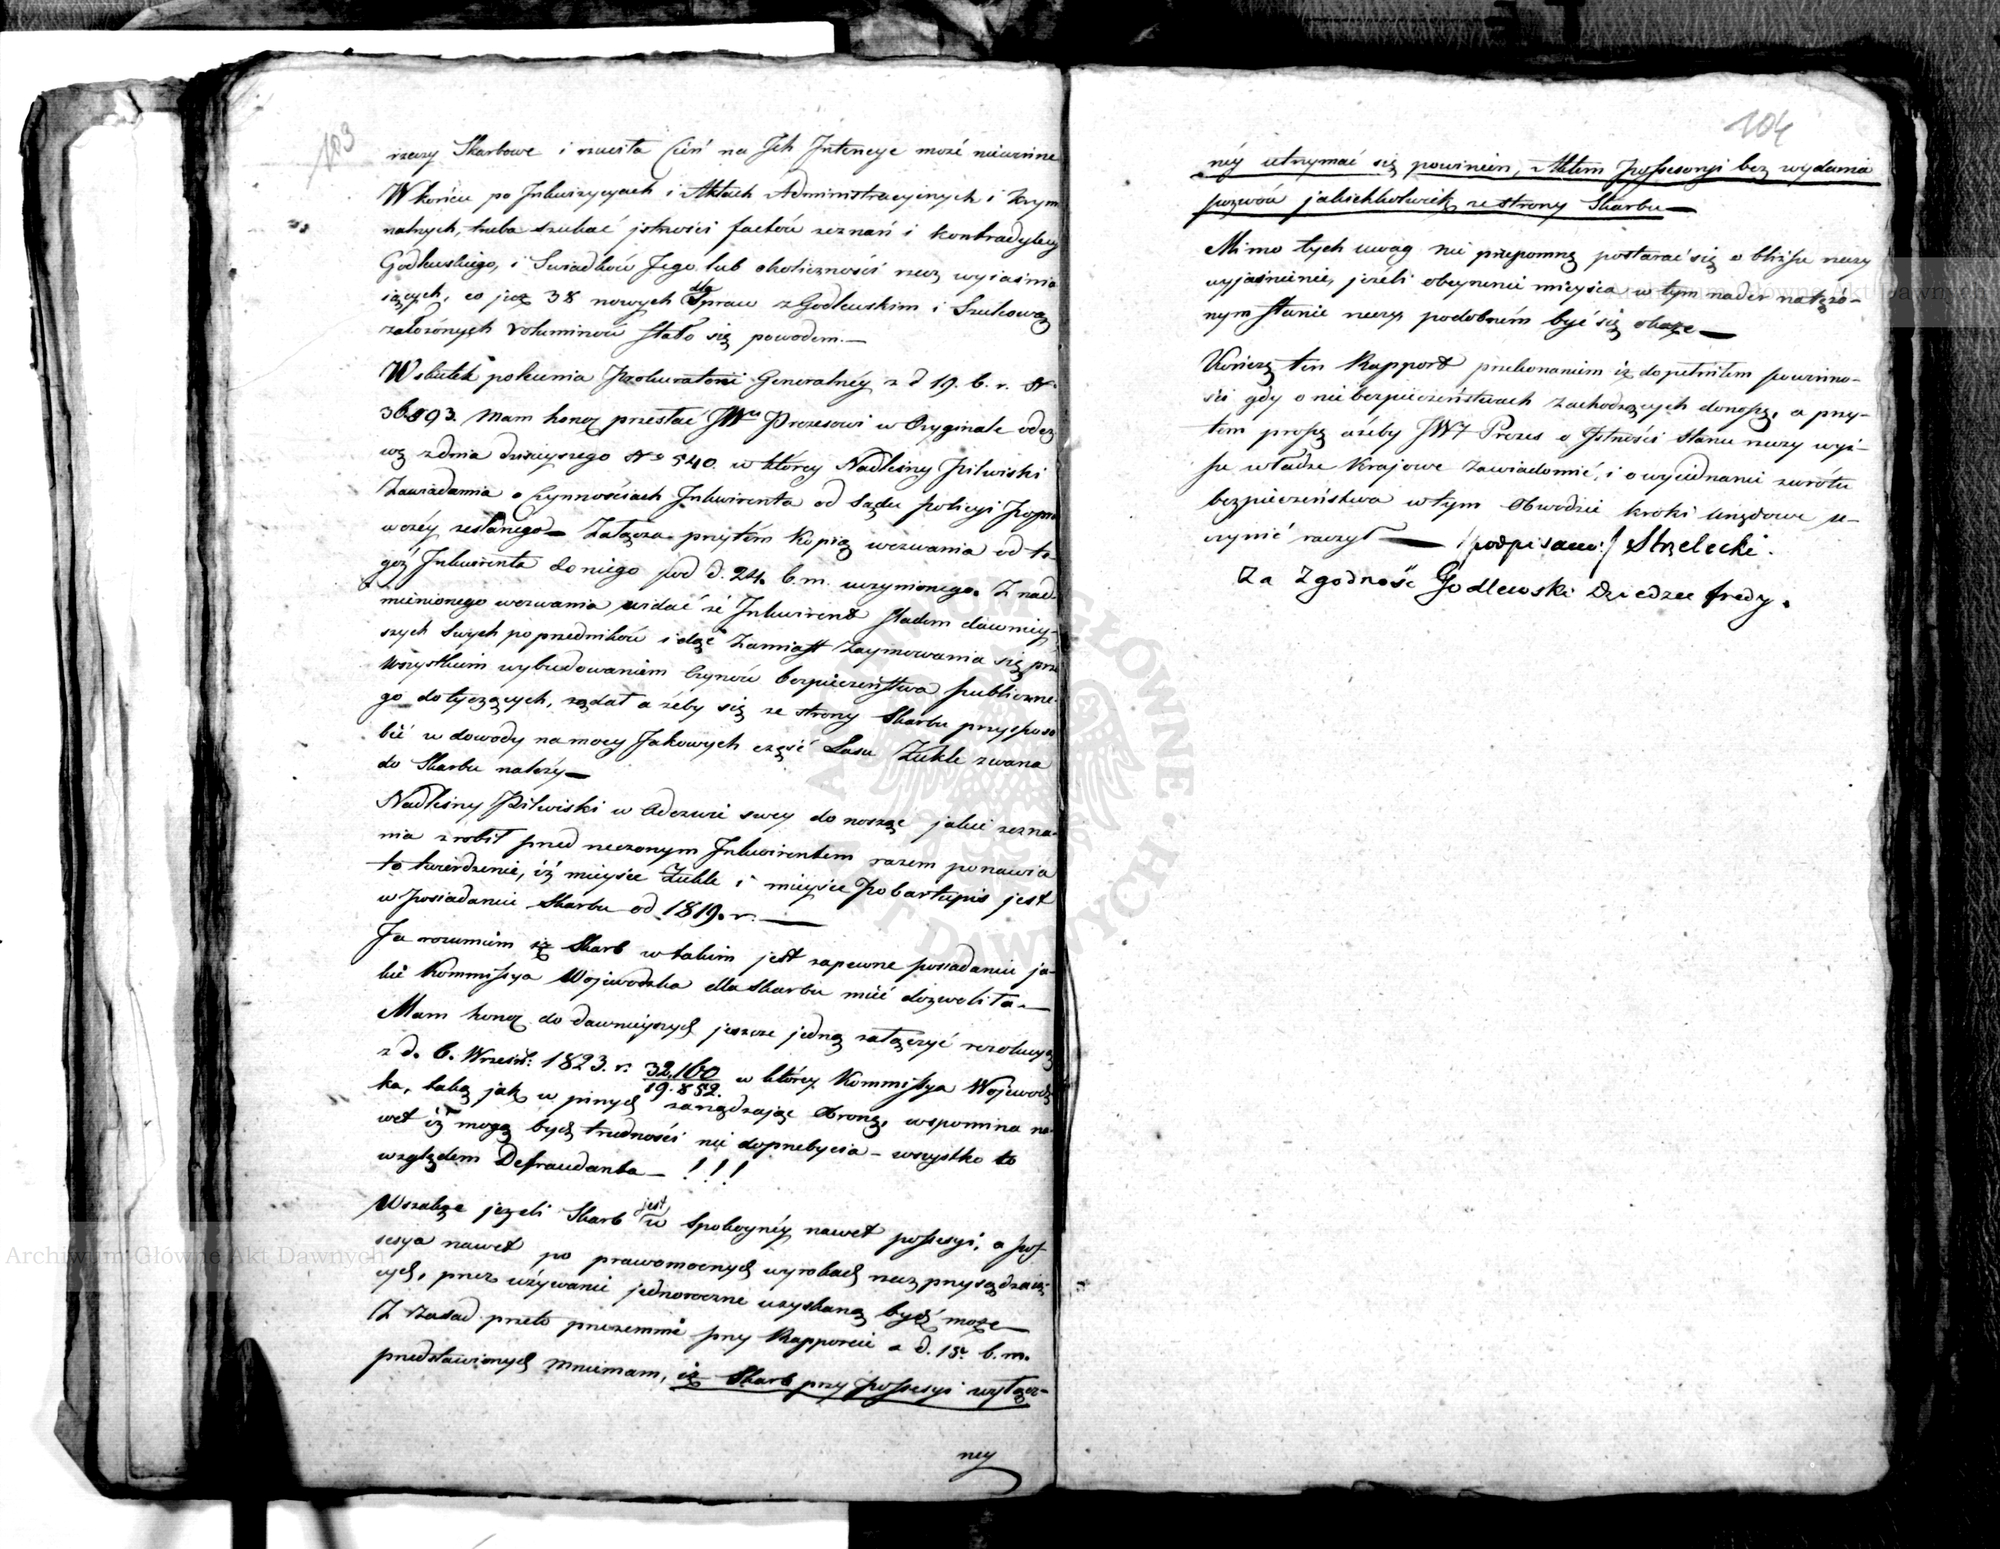 103
rzeczy Skarbowe i rzuciła Cień na Ich Intencye może niewinne
W końcu po Inkwizycyach i Aktach Administracyinych i Krym
nalnych, trzeba szukać istności factów zeznań i kontradykcyi
Godlewskiego, i Swiadków Jego lub okoliczności rzecz wyiaśnia
iących, co już 38 nowych dla Spraw z Godlewskim i Szukową
założonych voluminów stało się powodem. —
Wskutek polecenia Prokuratorii Generalney z d 19. b. r. N
36893. Mam honor przesłać JWu Prezesowi w Oryginale odez
wę z dnia dzisieyszego No 540. w którey Nadleśny Pilwiski
Zawiadamia o Czynnościach Inkwirenta od Sądu Policyi Popra
wczéy zesłanego — Załącza przytém kopią wezwania od te-
goż Inkwirenta do niego pod d. 24. b. m. uczynionego. Z nad-
mienionego wezwania widać że Inkwirent śladem dawniey-
szych Swych poprzedników idąc Zamiast Zaymowania się prze
wszystkiem wybudowaniem Czynów bezpieczeństwa publiczne-
go dotyczących, żądał ażeby się ze strony Skarbu przysposo
bić w dowody na mocy Jakowych część Lasu Żukle zwana
do Skarbu należy —
Nadleśny Pilwiski w Odezwie swey donosząc jakie zezna-
nia zrobił przed rzeczonym Inkwirentem razem ponawia
to twierdzenie, iż mieysce Żukle i mieysce Pobartupis jest
w posiadaniu Skarbu od 1819. r. —
Ja rozumiem iż Skarb w takim jest zapewne posiadaniu ja-
kie Kommissya Wojewodzka dla Skarbu mieć dozwoliła. —
Mam honor do dawnieyszych jeszcze jedną załączyć rezolucyą
z d. 6. Wrześ: 1823. r. 32,160/19.852. w którey Kommissya Wojewodz
ka, taką jak w innych zarządzając Obronę, wspomina na-
wet iż mogą bydź trudności nie doprzebycia — wszystko to
względem Defraudanta — !!!
Wszakże jeżeli Skarb jest w spokoynéy nawet possesyi, a pos-
sesya nawet po prawomocnych wyrokach rzecz przysądzaią-
cych, przez używanie jednoroczne uzyskaną bydź może —
Z Zasad przeto przezemnie przy Rapporcie z d. 15. b. m.
przedstawionych mniemam, iż Skarb przy possesyi wyłącz-
ney
104
néy utrzymać się powinien, Aktem possesoryi bez wydania
pozwów jakichkolwiek ze strony Skarbu —
Mimo tych uwag nie przepomnę postarać się o bliższe rzeczy
wyjaśnienie, jeżeli obeyrzenie mieysca w tym nader natężo-
nym stanie rzeczy podobném być się okaże —
Kończę ten Rapport przekonaniem iż dopełniłem powinno-
ści gdy o niebezpieczeństwach zachodzących donoszę, a przy-
tem proszę ażeby JWy Prezes o Istności stanu rzeczy wyż-
sze władze Krajowe zawiadomić, i o wyiednanie zwrótu
bezpieczeństwa w tym Obwodzie kroki urzędowe u-
czynić raczył — /podpisano:/ Strzelecki.
Za Zgodność Godlewski Dziedzic Fredy.
Archiwum Główne Akt Dawnych
Archiwum Główne Akt Dawnych
ARCHIWUM GŁÓWNE AKT DAWNYCH